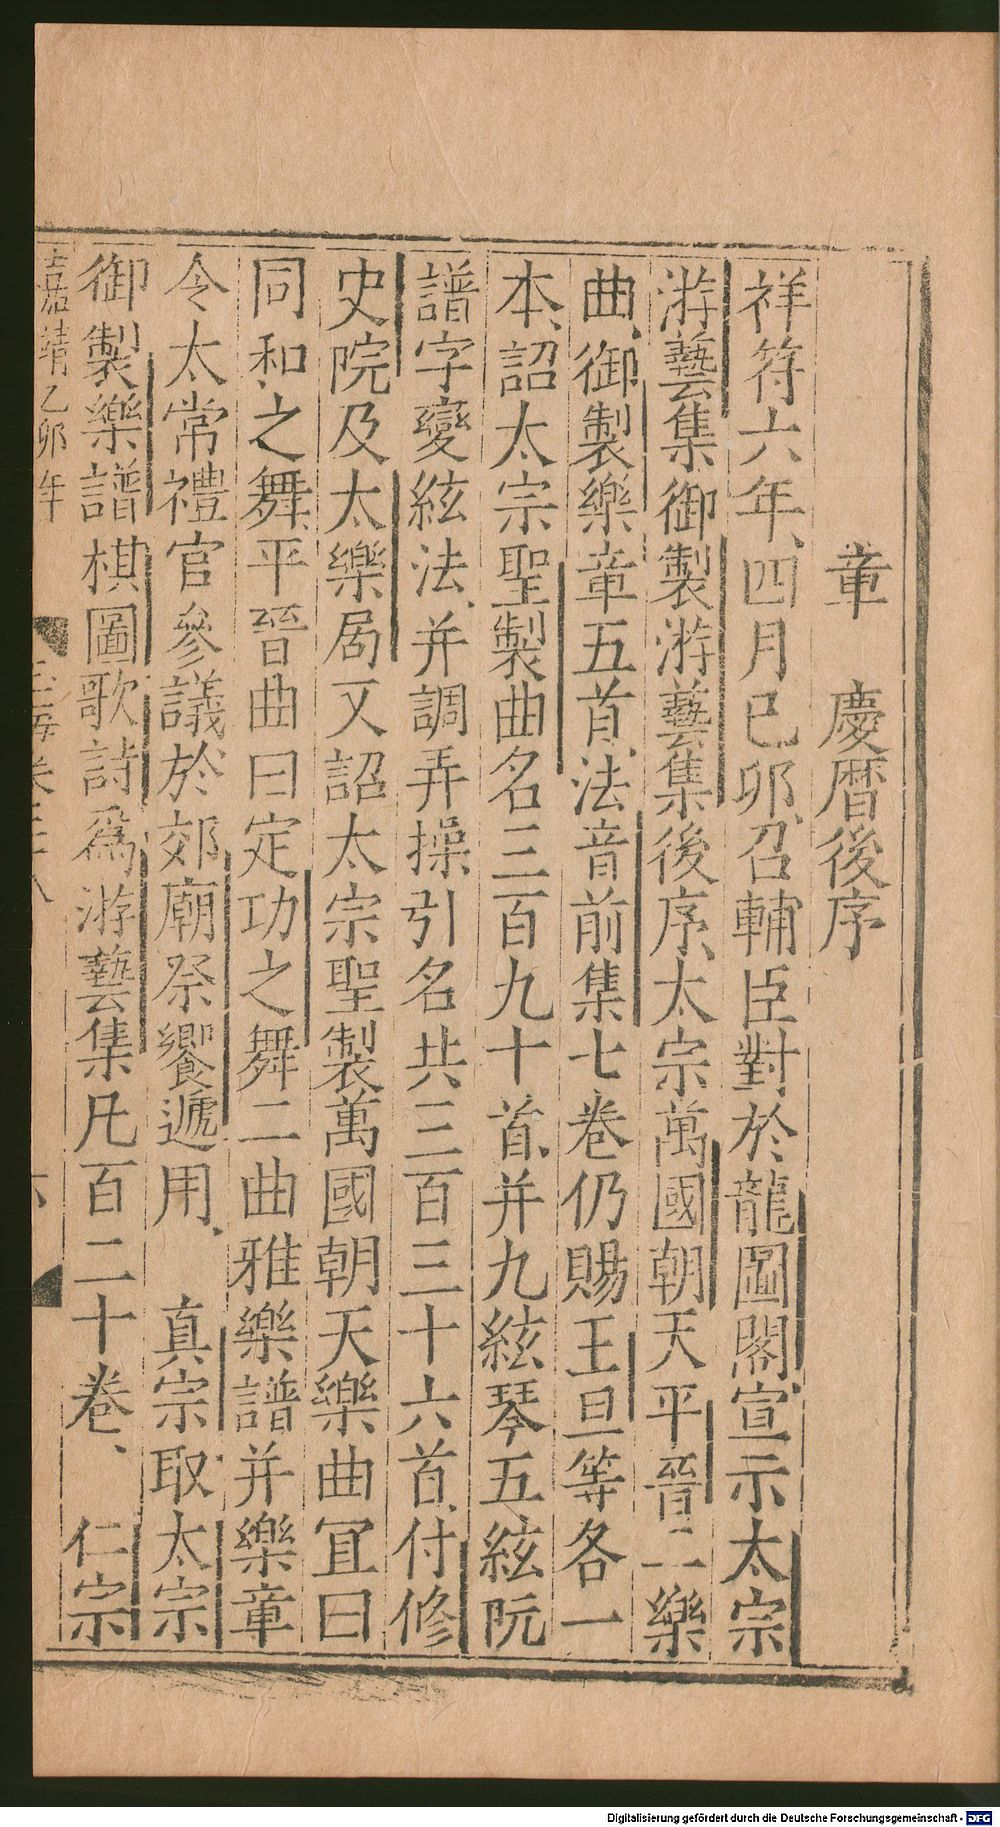 章　慶曆後序
祥符六年、四月己卯、召輔臣對於龍圖閣、宣示太宗
游藝集御製游藝集後序、太宗萬國朝天平晉二樂
曲、御製樂章五首、法音前集七卷仍賜王旦等各一
本、詔太宗聖製曲名三百九十首、并九絃琴五絃阮
譜字變絃法、并調弄操引名共三百三十六首、付修
史院及太樂局又詔太宗聖製萬國朝天樂曲冝曰
同和之舞、平晉曲曰定功之舞二曲雅樂譜并樂章
令太常禮官參議於郊廟祭饗遞用、　真宗取太宗
御製樂譜棋圖歌詩爲游藝集凡百二十卷、　仁宗
嘉靖乙卯年　玉海卷二十八　六
Digitalisierung gefördert durch die Deutsche Forschungsgemeinschaft - DFG